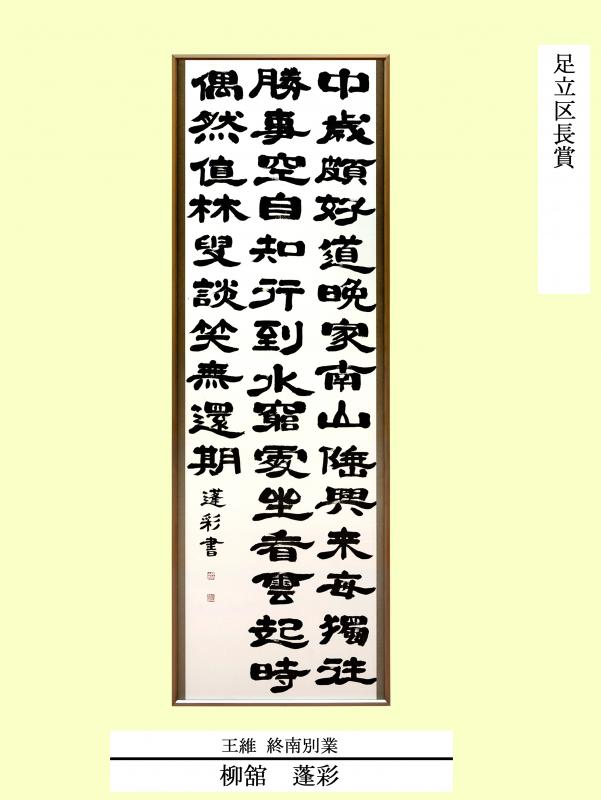 足立区長賞
中歳頗好道晩家南山陲興来毎獨往
勝事空自知行到水窮處坐看雲起時
偶然值林叟談笑無還期
蓬彩書
王維 終南別業
柳舘 蓬彩